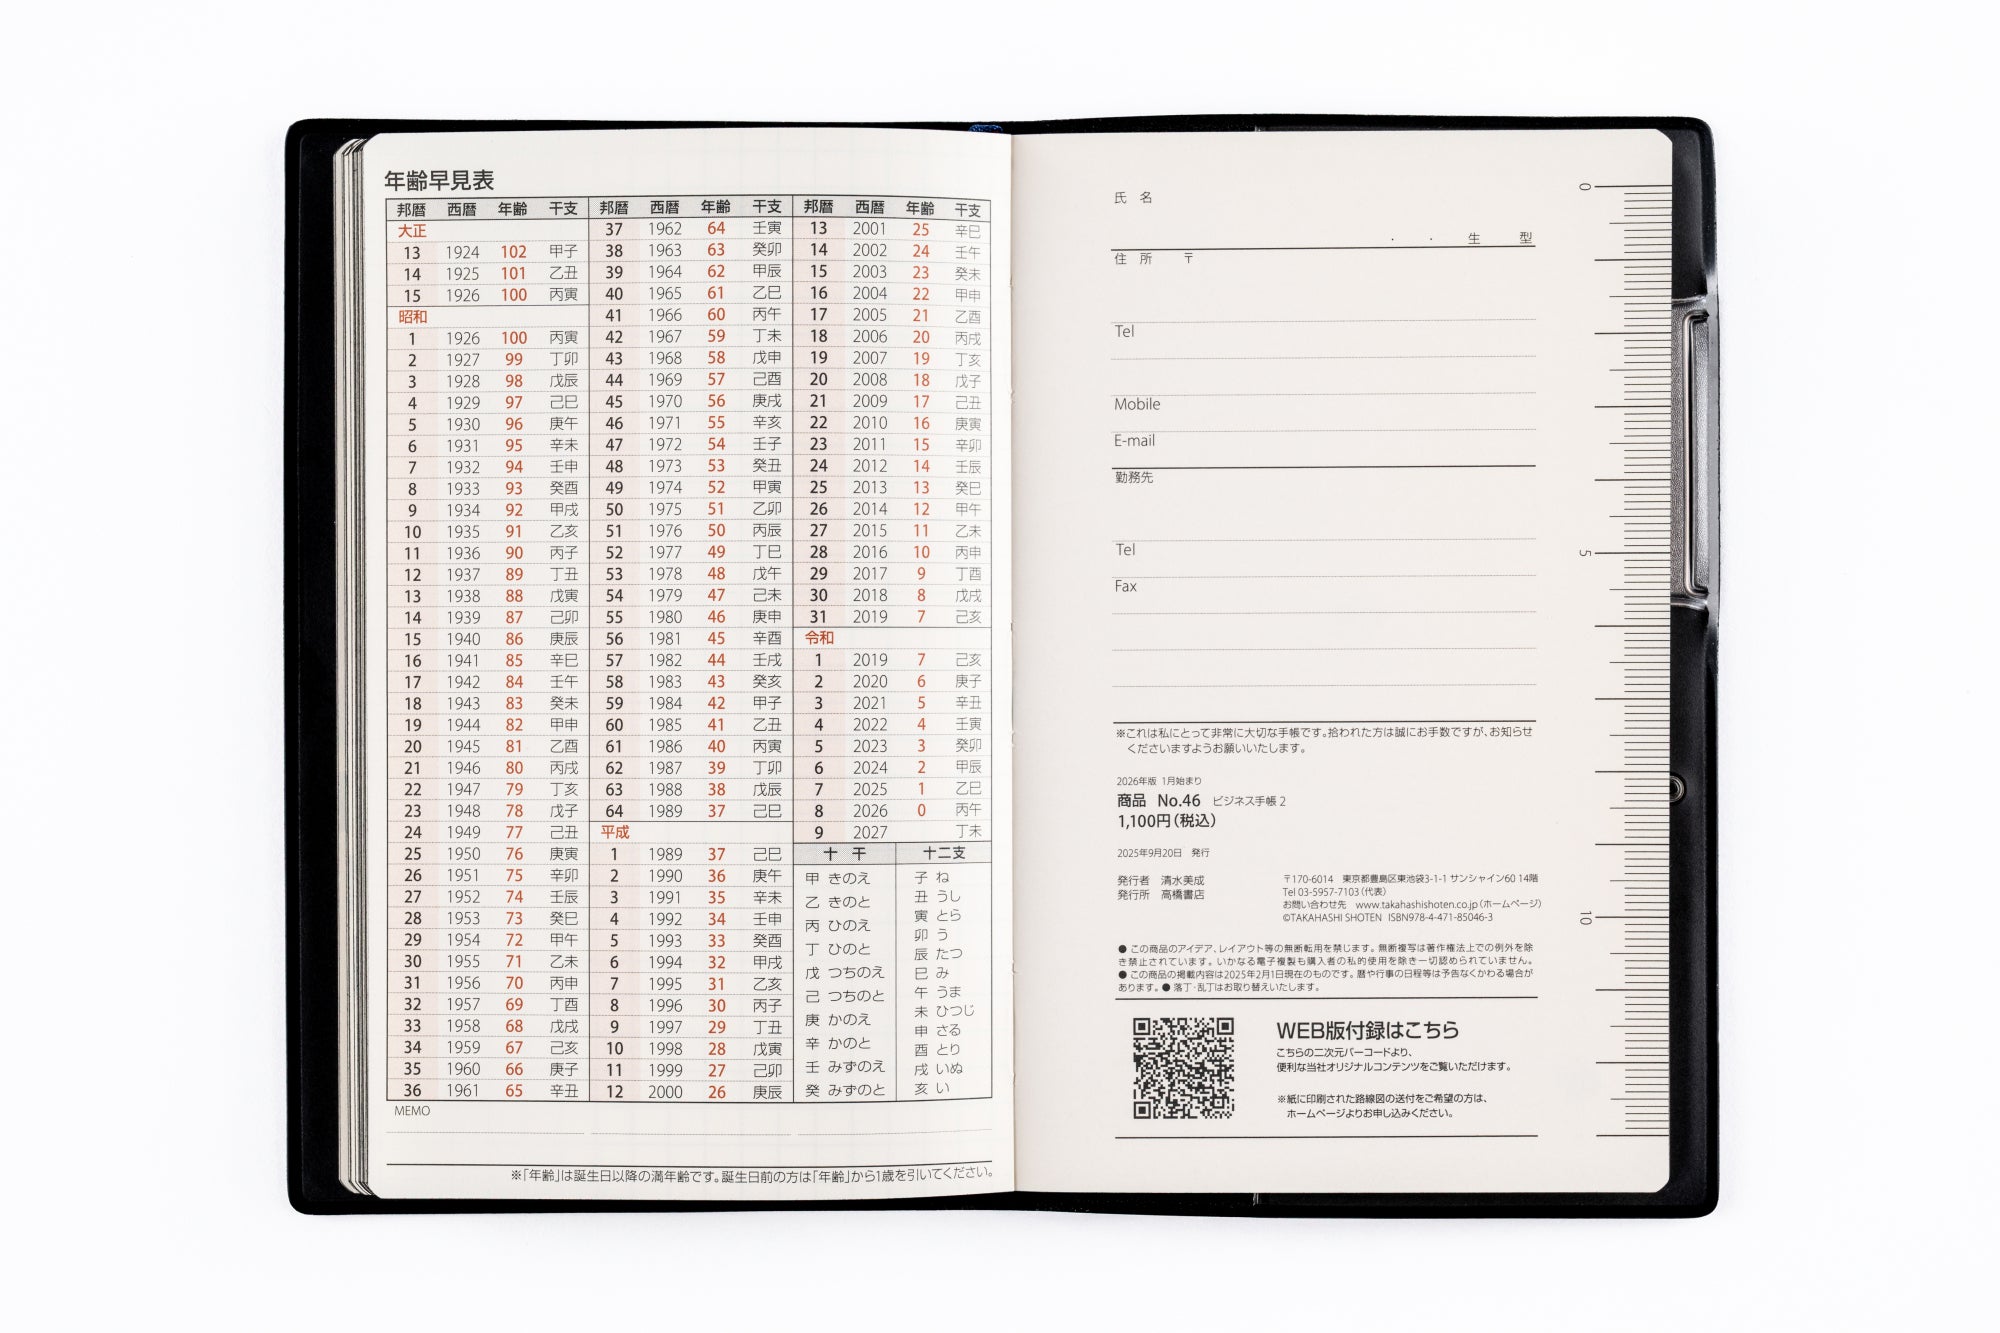 年齢早見表
邦暦 西暦 年齢 干支
大正
13 1924 102 甲子
14 1925 101 乙丑
15 1926 100 丙寅
昭和
1 1926 100 丙寅
2 1927 99 丁卯
3 1928 98 戊辰
4 1929 97 己巳
5 1930 96 庚午
6 1931 95 辛未
7 1932 94 壬申
8 1933 93 癸酉
9 1934 92 甲戌
10 1935 91 乙亥
11 1936 90 丙子
12 1937 89 丁丑
13 1938 88 戊寅
14 1939 87 己卯
15 1940 86 庚辰
16 1941 85 辛巳
17 1942 84 壬午
18 1943 83 癸未
19 1944 82 甲申
20 1945 81 乙酉
21 1946 80 丙戌
22 1947 79 丁亥
23 1948 78 戊子
24 1949 77 己丑
25 1950 76 庚寅
26 1951 75 辛卯
27 1952 74 壬辰
28 1953 73 癸巳
29 1954 72 甲午
30 1955 71 乙未
31 1956 70 丙申
32 1957 69 丁酉
33 1958 68 戊戌
34 1959 67 己亥
35 1960 66 庚子
36 1961 65 辛丑
邦暦 西暦 年齢 干支
37 1962 64 壬寅
38 1963 63 癸卯
39 1964 62 甲辰
40 1965 61 乙巳
41 1966 60 丙午
42 1967 59 丁未
43 1968 58 戊申
44 1969 57 己酉
45 1970 56 庚戌
46 1971 55 辛亥
47 1972 54 壬子
48 1973 53 癸丑
49 1974 52 甲寅
50 1975 51 乙卯
51 1976 50 丙辰
52 1977 49 丁巳
53 1978 48 戊午
54 1979 47 己未
55 1980 46 庚申
56 1981 45 辛酉
57 1982 44 壬戌
58 1983 43 癸亥
59 1984 42 甲子
60 1985 41 乙丑
61 1986 40 丙寅
62 1987 39 丁卯
63 1988 38 戊辰
64 1989 37 己巳
平成
1 1989 37 己巳
2 1990 36 庚午
3 1991 35 辛未
4 1992 34 壬申
5 1993 33 癸酉
6 1994 32 甲戌
7 1995 31 乙亥
8 1996 30 丙子
9 1997 29 丁丑
10 1998 28 戊寅
11 1999 27 己卯
12 2000 26 庚辰
邦暦 西暦 年齢 干支
13 2001 25 辛巳
14 2002 24 壬午
15 2003 23 癸未
16 2004 22 甲申
17 2005 21 乙酉
18 2006 20 丙戌
19 2007 19 丁亥
20 2008 18 戊子
21 2009 17 己丑
22 2010 16 庚寅
23 2011 15 辛卯
24 2012 14 壬辰
25 2013 13 癸巳
26 2014 12 甲午
27 2015 11 乙未
28 2016 10 丙申
29 2017 9 丁酉
30 2018 8 戊戌
31 2019 7 己亥
令和
1 2019 7 己亥
2 2020 6 庚子
3 2021 5 辛丑
4 2022 4 壬寅
5 2023 3 癸卯
6 2024 2 甲辰
7 2025 1 乙巳
8 2026 0 丙午
9 2027 丁未
十干
甲 きのえ
乙 きのと
丙 ひのえ
丁 ひのと
戊 つちのえ
己 つちのと
庚 かのえ
辛 かのと
壬 みずのえ
癸 みずのと
十二支
子 ね
丑 うし
寅 とら
卯 う
辰 たつ
巳 み
午 うま
未 ひつじ
申 さる
酉 とり
戌 いぬ
亥 い
MEMO
※「年齢」は誕生日以降の満年齢です。誕生日前の方は「年齢」から1歳を引いてください。
氏 名
・ ・ 生 型
住 所 〒
Tel
Mobile
E-mail
勤務先
Tel
Fax
※これは私にとって非常に大切な手帳です。拾われた方は誠にお手数ですが、お知らせ
くださいますようお願いいたします。
2026年版 1月始まり
商品 No.46 ビジネス手帳 2
1,100円(税込)
2025年9月20日 発行
発行者 清水美成
発行所 高橋書店
〒170-6014 東京都豊島区東池袋3-1-1 サンシャイン60 14階
Tel 03-5957-7103(代表)
お問い合わせ先 www.takahashishoten.co.jp(ホームページ)
©TAKAHASHI SHOTEN ISBN978-4-471-85046-3
● この商品のアイデア、レイアウト等の無断転用を禁じます。無断複写は著作権法上での例外を除
き禁止されています。いかなる電子複製も購入者の私的使用を除き一切認められていません。
● この商品の掲載内容は2025年2月1日現在のものです。暦や行事の日程等は予告なくかわる場合が
あります。● 落丁・乱丁はお取り替えいたします。
WEB版付録はこちら
こちらの二次元バーコードより、
便利な当社オリジナルコンテンツをご覧いただけます。
※紙に印刷された路線図の送付をご希望の方は、
ホームページよりお申し込みください。
0
5
10